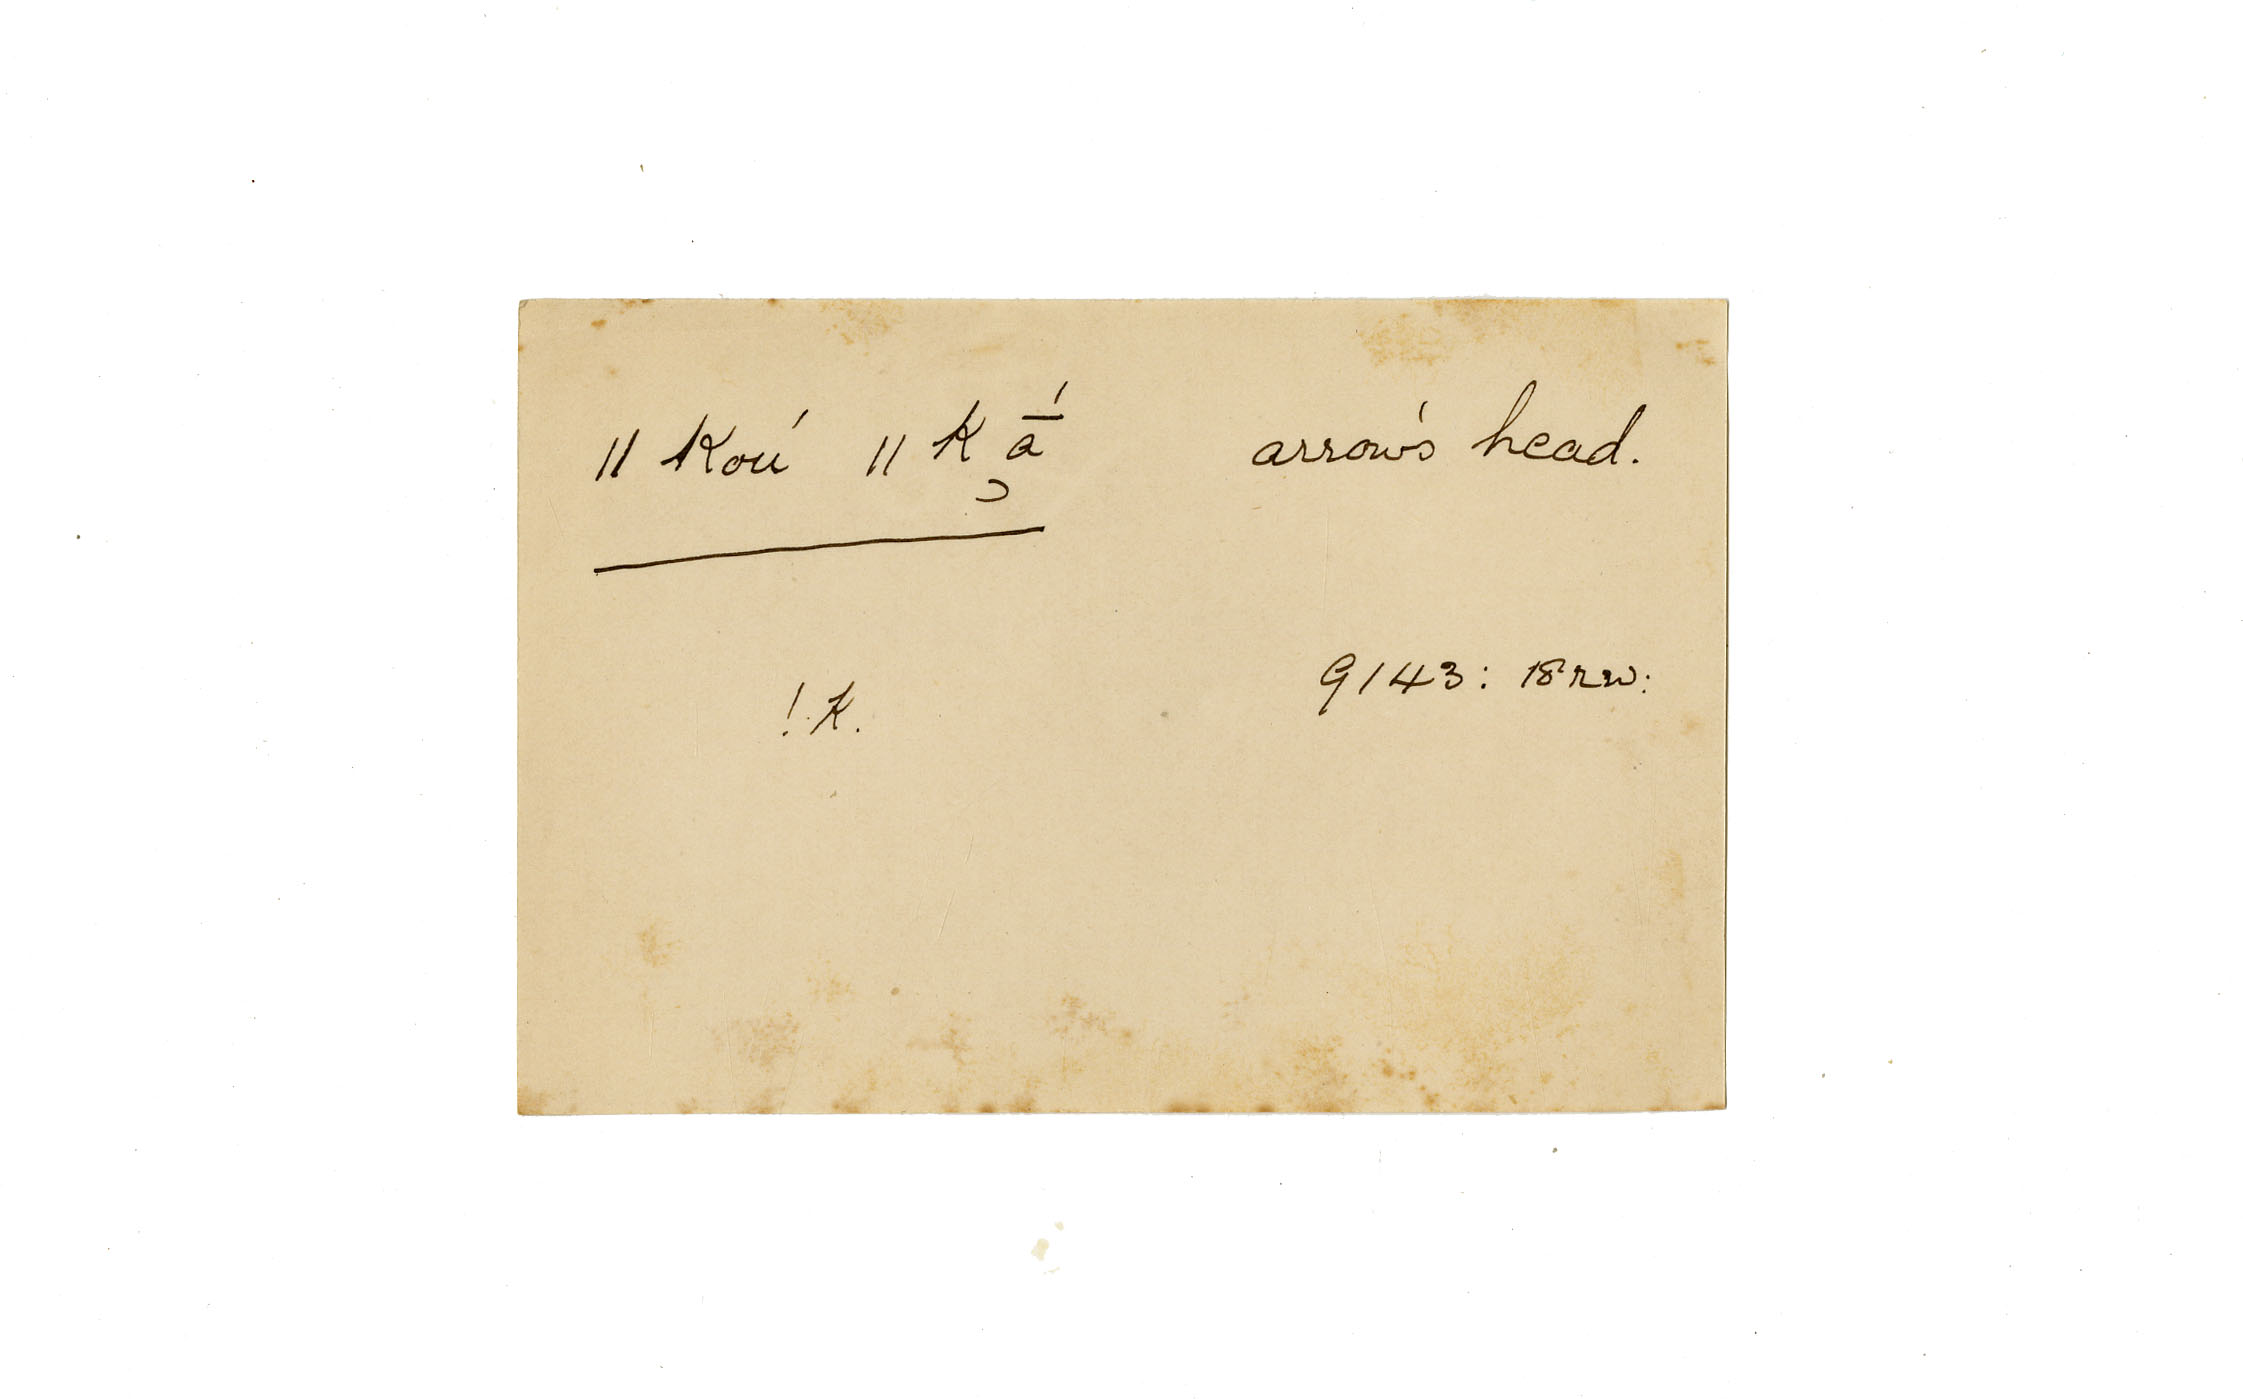 ǁ Kou̍ ǁ K̯ā́ arrow's head.
! K. 9143: 18 rw: